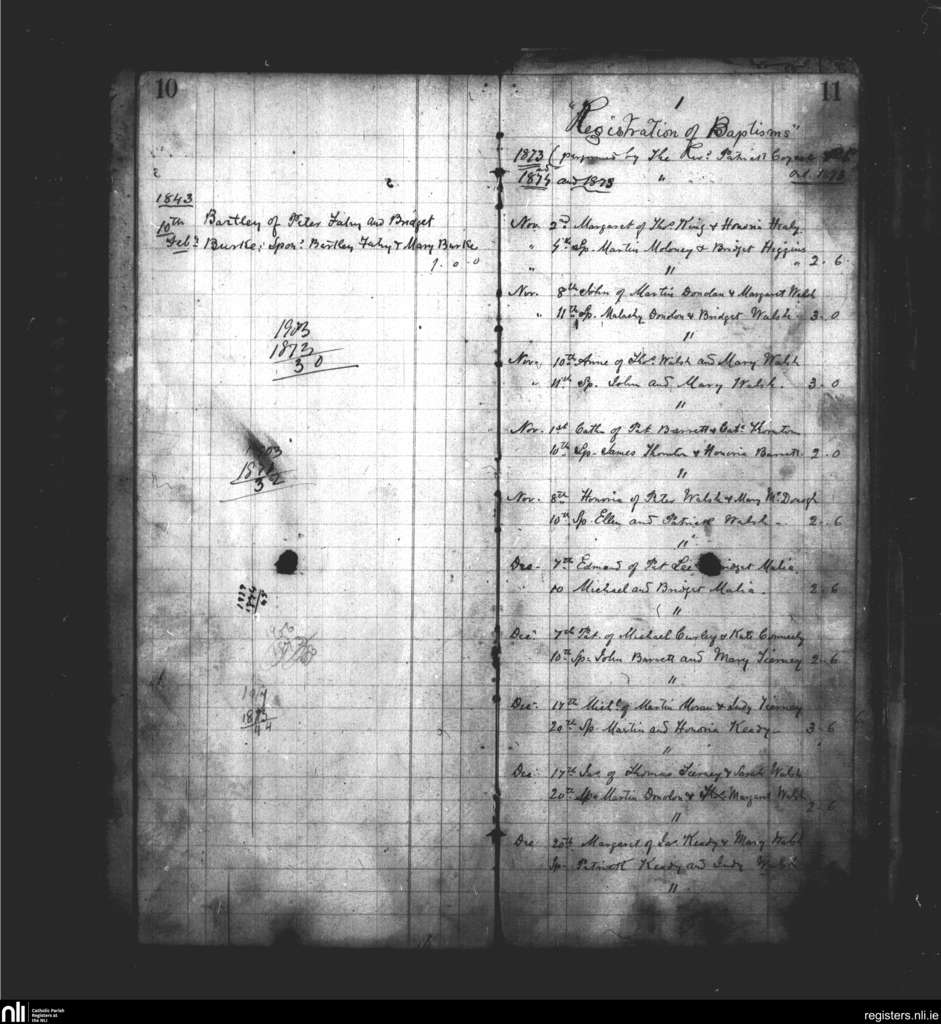 10
1843
10th Bartley of Peter Fahy and Bridget
Feb. Burke; Spon. Bartley Fahy & Mary Burke
1 . 0 . 0
1903
1873
3 0
1903
1871
32
11
1
"Registration of Baptisms"
1873 ( performed by The Rev. Patrick
1874 and 1873 " Oct. 1873
Nov. 2nd Margaret of Thos. King & Honoria Healy
" 4th Sp. Martin Moloney & Bridget Higgins " 2 . 6
" "
Nov. 8th John of Martin Donolan & Margaret Walsh
" 11th Sp. Malachy Donolon & Bridget Walsh 3 . 0
"
Nov. 10th Anne of Thos. Walsh and Mary Walsh
" 11th Sp. John and Mary Walsh . 3 . 0
"
Nov. 1st Cath. of Pat Barrett & Cath. Thornton
10th Sp. James Thornton & Honoria Barrett. 2 . 0
"
Nov. 8th Honoria of Peter Walsh & Mary McDonagh
10th Sp. Ellen and Patrick Walsh - 2 . 6
"
Dec. 7th Edmond of Pat Lee Bridget Malia
10 Michael and Bridget Malia . 2 . 6
"
Dec. 7th Pat. of Michael Curley & Kate Conneely
10th Sp. John Barrett and Mary Tierney 2 . 6
"
Dec. 17th Michl. of Martin Moran & Judy Tierney
20th Sp. Martin and Honoria Keady - 3 . 6
"
Dec. 17th Jas. of Thomas Tierney & Sarah Walsh
20th Sp. Martin Donolon & Margaret Walsh
2 . 6
"
Dec 20th Margaret of Jas. Keady & Mary Walsh
Sp. Patrick Keady and Judy Walsh
"
nli
Catholic Parish
Registers at
the NLI
registers.nli.ie